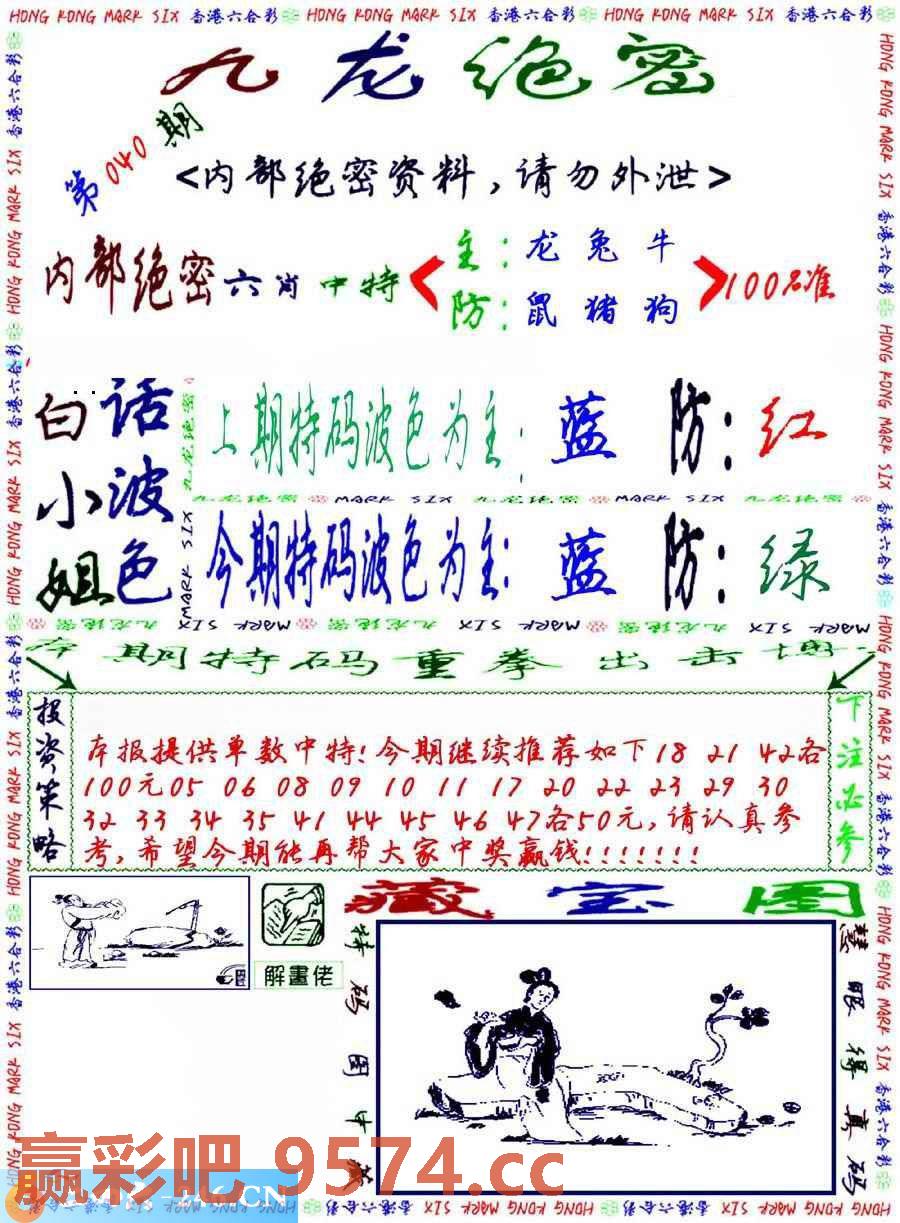 HONG KONG MARK SIX 香港六合彩 HONG KONG MARK SIX 香港六合彩 HONG KONG MARK SIX 香港六合彩 HONG KONG MARK SIX 香港六合彩
九龙绝密
第040期
<内部绝密资料,请勿外泄>
内部绝密六肖中特
主:龙兔牛
防:鼠猪狗
100%准
白小姐
话波色
上期特码波色为主:蓝 防:红
九龙绝密 MARK SIX 九龙绝密 MARK SIX 九龙绝密
今期特码波色为主:蓝 防:绿
九龙绝密 MARK SIX 九龙绝密 MARK SIX 九龙绝密 MARK SIX
本期特码重拳出击
投资策略
本报提供单数中特!今期继续推荐如下18 21 42各
100元05 06 08 09 10 11 17 20 22 23 29 30
32 33 34 35 41 44 45 46 47各50元,请认真参
考,希望今期能再帮大家中奖赢钱!!!!!!!
下注必参
解畫佬
藏宝图
特码图中藏
慧眼得真码
赢彩吧.9574.cc
.CN
HONG KONG MARK SIX 香港六合彩